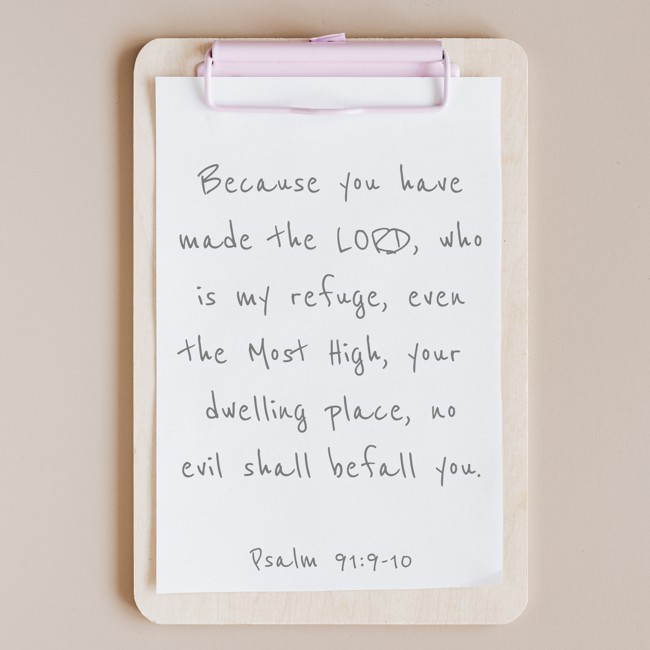 Because you have
made the LORD, who
is my refuge, even
the Most High, your
dwelling place, no
evil shall befall you.
Psalm 91:9-10